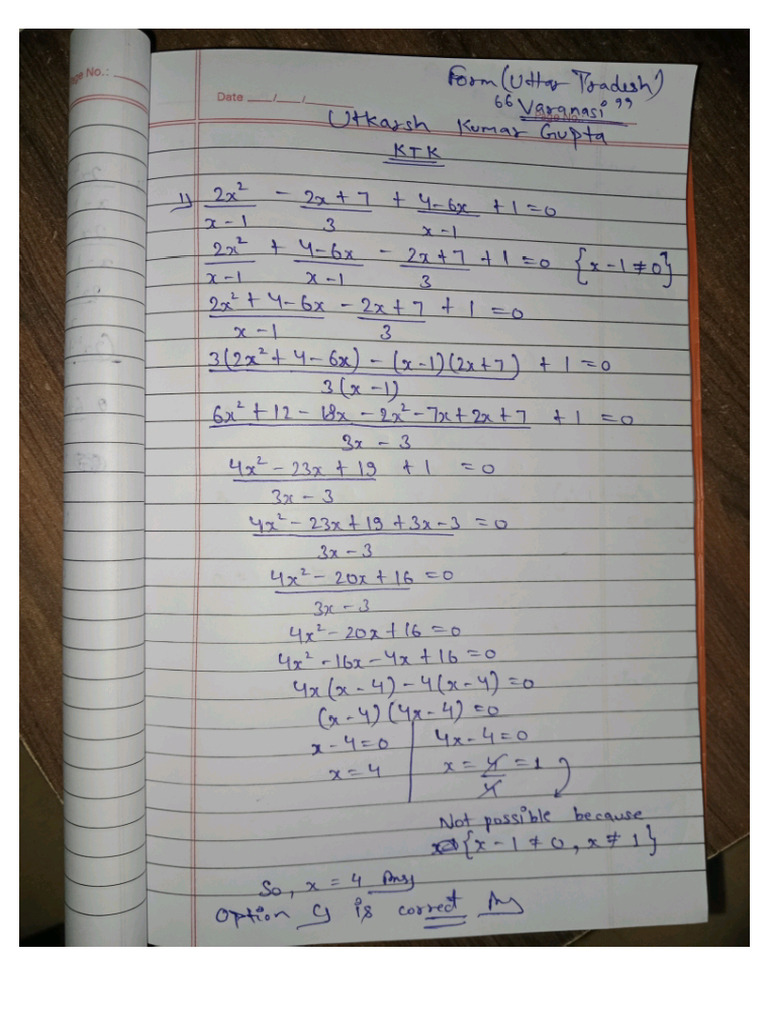 age No.: ____
Date ___/___/______
Form (Uttar Pradesh)
"Varanasi"
Utkarsh Kumar Gupta
KTK
1) 2x²/(x-1) - (2x+7)/3 + (4-6x)/(x-1) + 1 = 0
2x²/(x-1) + (4-6x)/(x-1) - (2x+7)/3 + 1 = 0 {x-1≠0}
(2x²+4-6x)/(x-1) - (2x+7)/3 + 1 = 0
(3(2x²+4-6x) - (x-1)(2x+7))/(3(x-1)) + 1 = 0
(6x²+12-18x-2x²-7x+2x+7)/(3x-3) + 1 = 0
(4x²-23x+19)/(3x-3) + 1 = 0
(4x²-23x+19+3x-3)/(3x-3) = 0
(4x²-20x+16)/(3x-3) = 0
4x²-20x+16=0
4x²-16x-4x+16=0
4x(x-4)-4(x-4)=0
(x-4)(4x-4)=0
x-4=0 | 4x-4=0
x=4 | x=4/4=1
Not possible because
{x-1≠0, x≠1}
So, x=4 Ans
Option C) is correct Ans